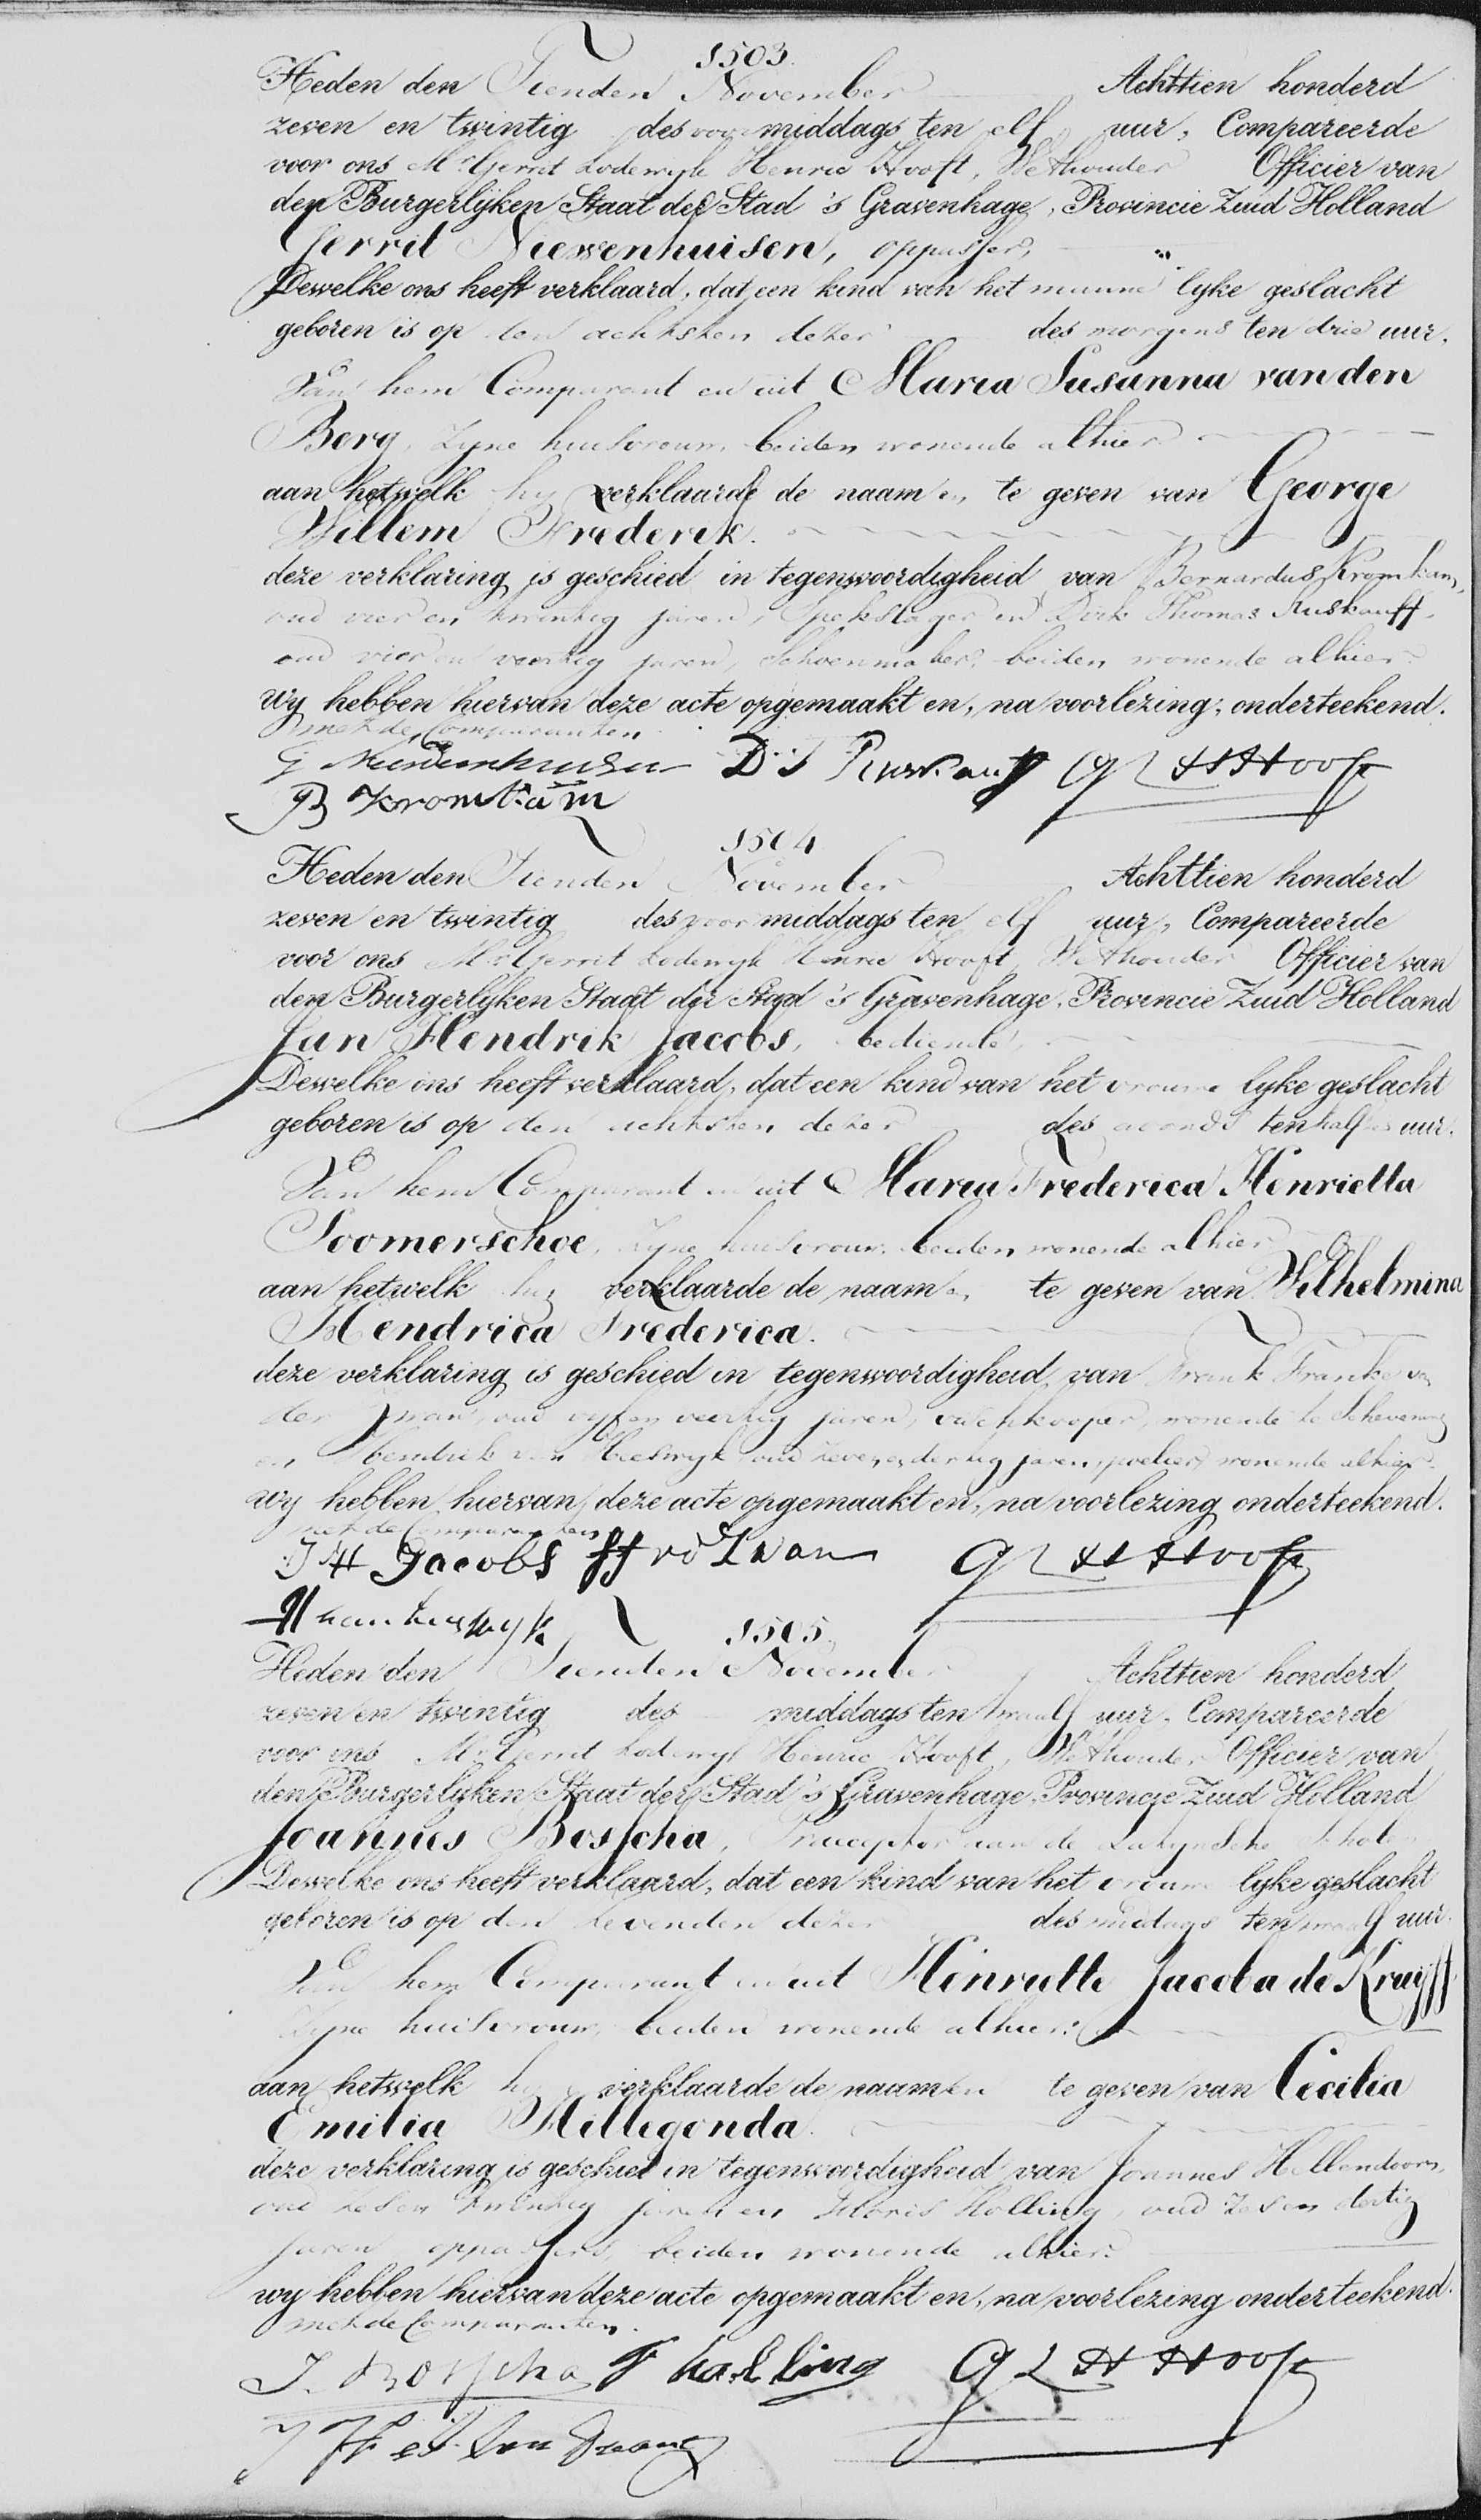 1503.
Heden den Tienden November Achttien honderd
zeven en twintig des voor middags ten elf uur, Compareerde
voor ons Mr. Gerrit Lodewyk Henric Hooft, Wethouder Officier van
den Burgerlyken Staat der Stad 's Gravenhage, Provincie Zuid Holland
Gerrit Niewenhuisen, oppasser,
Dewelke ons heeft verklaard, dat een kind van het manne lyke geslacht
geboren is op den achtsten dezer des morgens ten drie uur.
Van hem Comparant en uit Maria Susanna van den
Berg, zyne huisvrouw, beiden wonende alhier
aan hetwelk hy verklaarde de naamen te geven van George
Willem Frederik.
deze verklaring is geschied in tegenwoordigheid van Bernardus Kromkam,
oud vier en twintig jaren, Spekslager en Dirk Thomas Ruskauff,
oud vier en veertig jaren, Schoenmaker, beiden wonende alhier.
wy hebben hiervan deze acte opgemaakt en, na voorlezing, onderteekend.
met de Comparanten
G Niewenhuisen D T Ruskauff G L H Hooft
B Kromkam
1504
Heden den Tienden November Achttien honderd
zeven en twintig des voor middags ten elf uur, Compareerde
voor ons Mr. Gerrit Lodewyk Henric Hooft, Wethouder Officier van
den Burgerlyken Staat der Stad 's Gravenhage, Provincie Zuid Holland
Jan Hendrik Jacobs, bediende,
Dewelke ons heeft verklaard, dat een kind van het vrouwe lyke geslacht
geboren is op den achtsten dezer des avonds ten half uur.
Van hem Comparant en uit Maria Frederica Henrietta
Soomerschoe, zyne huisvrouw, beiden wonende alhier
aan hetwelk hy verklaarde de naamen te geven van Wilhelmina
Hendrica Frederica.
deze verklaring is geschied in tegenwoordigheid van Frank Franke van
der Zwan, oud vyf en veertig jaren, vischkooper, wonende te Schevening
en Hendrik van oud zeven en dertig jaren, poelier, wonende alhier.
wy hebben hiervan deze acte opgemaakt en, na voorlezing onderteekend.
met de Comparanten
J H Jacobs ff vd Zwan G L H Hooft
H van
1505.
Heden den Tienden November Achttien honderd
zeven en twintig des middags ten twaalf uur, Compareerde
voor ons Mr. Gerrit Lodewyk Henric Hooft, Wethouder Officier van
den Burgerlyken Staat der Stad 's Gravenhage, Provincie Zuid Holland
Joannes Bosscha, Praeceptor aan de Latynsche Scholen
Dewelke ons heeft verklaard, dat een kind van het vrouwe lyke geslacht
geboren is op den zevenden dezer des middags ten twaalf uur.
Van hem Comparant en uit Henriette Jacoba de Kruyff
zyne huisvrouw, beiden wonende alhier.
aan hetwelk hy verklaarde de naamen te geven van Cecilia
Emilia Hillegonda.
deze verklaring is geschied in tegenwoordigheid van Joannes Hellendoorn,
oud zes en twintig jaren en Floris Holling, oud zes en dertig
jaren, oppassers, beiden wonende alhier.
wy hebben hiervan deze acte opgemaakt en, na voorlezing onderteekend.
met de Comparanten.
J. Bosscha F holling G L H Hooft
J